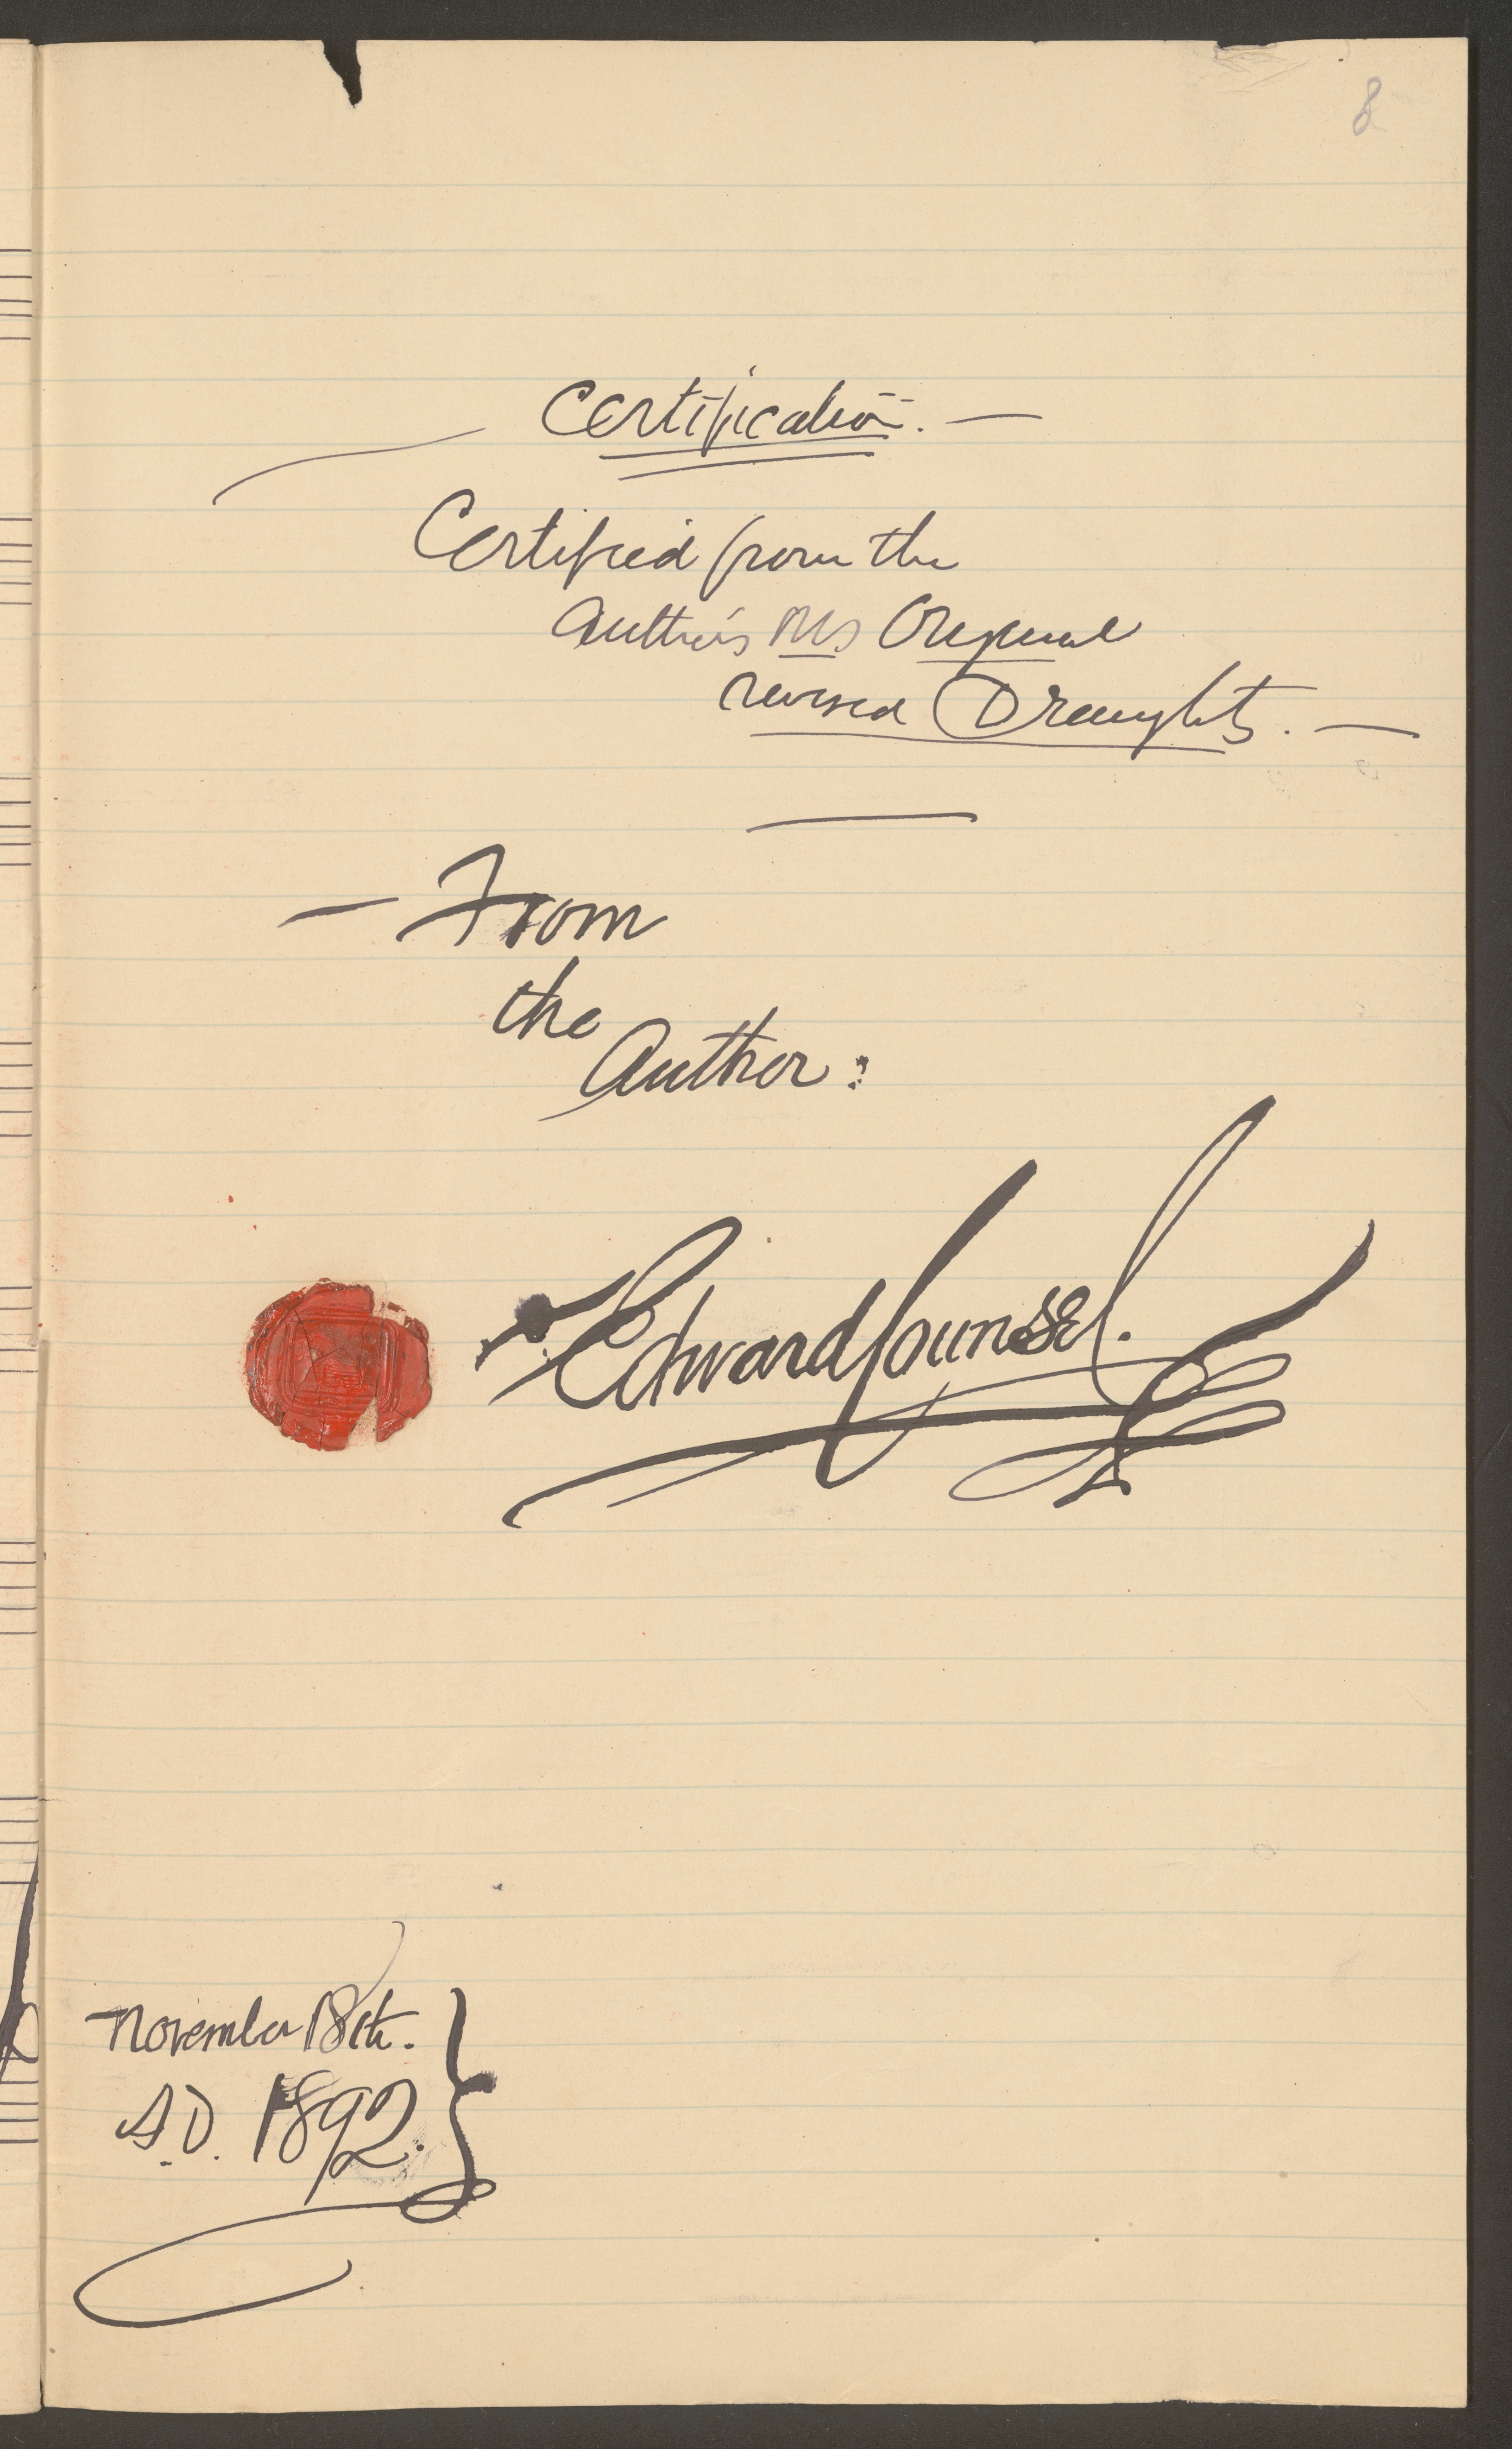 8
Certification. —
Certified from the
Author's Ms Original
revised Draughts. —
— From
the
Author:
Edward Counsel.
November 18th.
A.D. 1892.